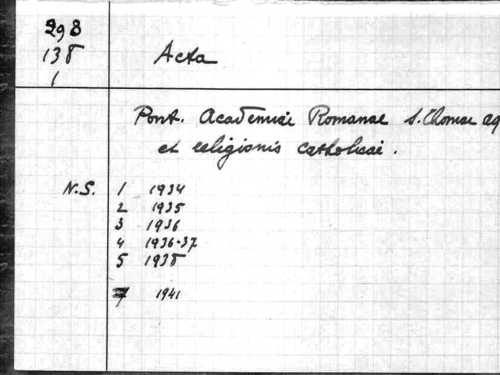 298
138
1
Acta
Pont. Academiae Romanae S. Thomae Aq
et religionis catholicae.
N.S. 1 1934
2 1935
3 1936
4 1936-37
5 1938
7 1941